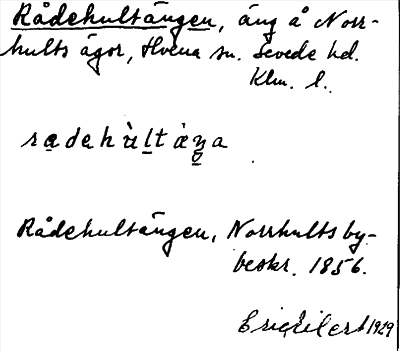 Rådehultängen, äng å Norr-
hults ägor, Hvena sn. Sevede hd.
Klm. l.
rądehùltàŋa
Rådehultängen, Norrhults by-
beskr. 1856.
Eric Eilert 1929